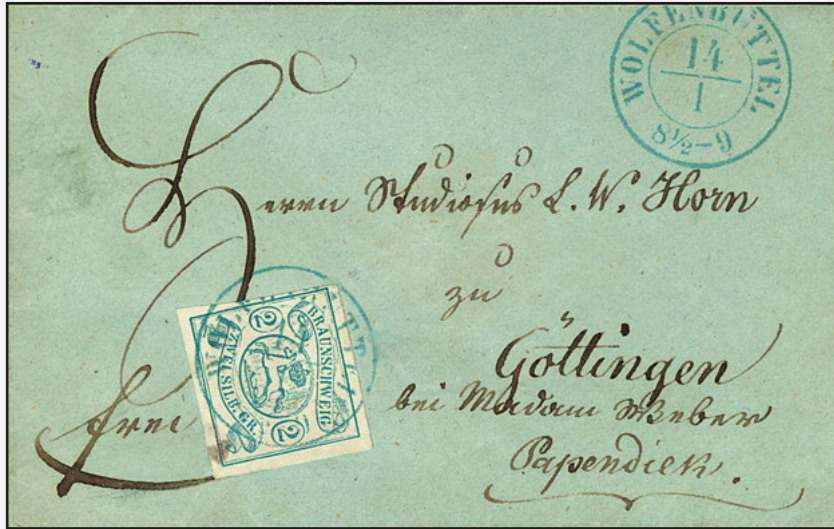 WOLFENBÜTTEL
14
1
8½-9
Herrn Studiosus L. W. Horn
zu
Göttingen
frei
bei Madam Weber
Papendiek.
BRAUNSCHWEIG
2
2
ZWEI SILB. GR.